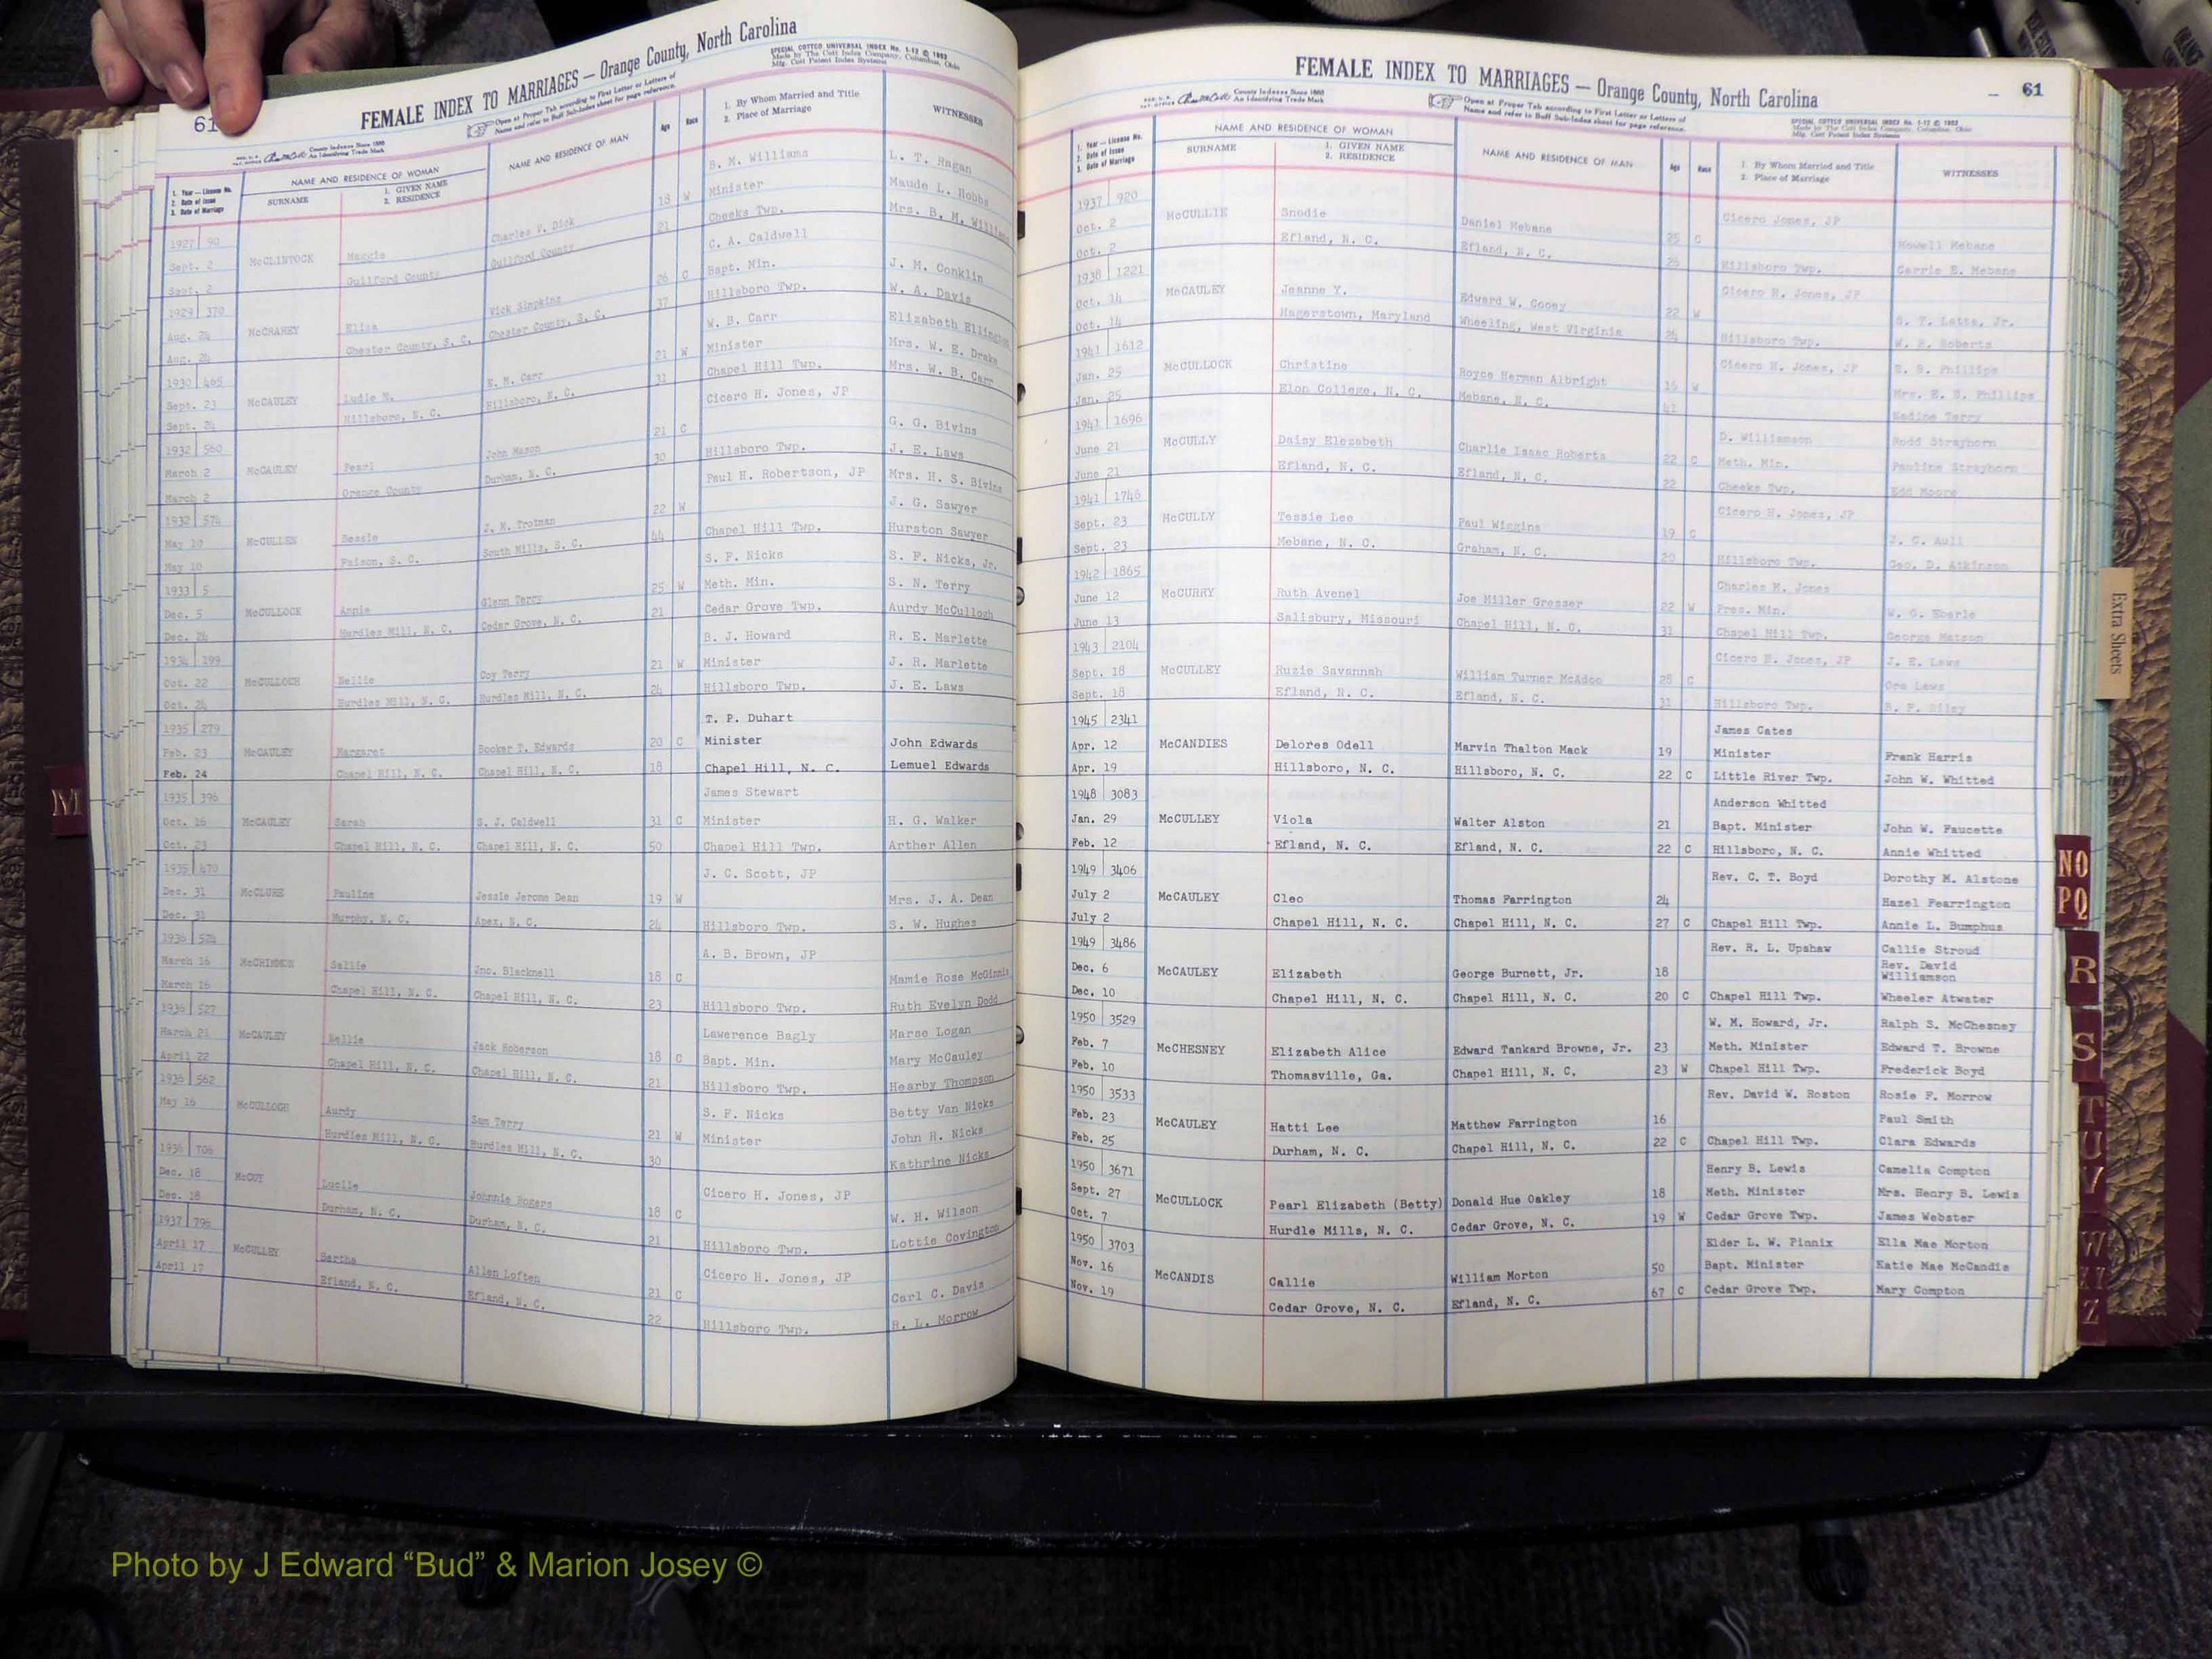 61
FEMALE INDEX TO MARRIAGES — Orange County, North Carolina
SPECIAL COTTCO UNIVERSAL INDEX No. 1-12 © 1952
Made by The Cott Index Company, Columbus, Ohio
Mfg. Cott Patent Index Systems
County Indexes Since 1888
An Identifying Trade Mark
Open at Proper Tab according to First Letter or Letters of
Name and refer to Buff Sub-Index sheet for page reference.
1. Year — License No.
2. Date of Issue
3. Date of Marriage
NAME AND RESIDENCE OF WOMAN
SURNAME
1. GIVEN NAME
2. RESIDENCE
NAME AND RESIDENCE OF MAN
Age
Race
1. By Whom Married and Title
2. Place of Marriage
WITNESSES
1927 90 B. M. Williams L. T. Hagan
Sept. 2 McCLINTOCK Maggie Charles V. Dick 18 W Minister Maude L. Hobbs
Sept. 2 Guilford County Guilford County 21 Cheeks Twp. Mrs. B. M. Williams
1929 370 C. A. Caldwell
Aug. 24 McCRAREY Eliza Vick Simpkins 26 C Bapt. Min. J. M. Conklin
Aug. 24 Chester County, S. C. Chester County, S. C. 37 Hillsboro Twp. W. A. Davis
1930 465 W. B. Carr Elizabeth Ellington
Sept. 23 McCAULEY Ludie N. N. M. Carr 21 W Minister Mrs. W. E. Drake
Sept. 24 Hillsboro, N. C. Hillsboro, N. C. 31 Chapel Hill Twp. Mrs. W. B. Carr
1932 560 Cicero H. Jones, JP
March 2 McCAULEY Pearl John Mason 21 C G. G. Bivins
March 2 Orange County Durham, N. C. 30 Hillsboro Twp. J. E. Laws
1932 574 Paul H. Robertson, JP Mrs. H. S. Bivins
May 10 McCULLEN Bessie J. M. Trotman 22 W J. G. Sawyer
May 10 Faison, S. C. South Mills, S. C. 44 Chapel Hill Twp. Hurston Sawyer
1933 5 S. F. Nicks S. F. Nicks, Jr.
Dec. 5 McCULLOCK Annie Glenn Terry 25 W Meth. Min. S. N. Terry
Dec. 24 Hurdles Mill, N. C. Cedar Grove, N. C. 21 Cedar Grove Twp. Aurdy McCullogh
1934 199 B. J. Howard R. E. Marlette
Oct. 22 McCULLOCH Nellie Coy Terry 21 W Minister J. R. Marlette
Oct. 24 Hurdles Mill, N. C. Hurdles Mill, N. C. 24 Hillsboro Twp. J. E. Laws
1935 279 T. P. Duhart
Feb. 23 McCAULEY Margaret Booker T. Edwards 20 C Minister John Edwards
Feb. 24 Chapel Hill, N. C. Chapel Hill, N. C. 18 Chapel Hill, N. C. Lemuel Edwards
1935 396 James Stewart
Oct. 16 McCAULEY Sarah S. J. Caldwell 31 C Minister H. G. Walker
Oct. 23 Chapel Hill, N. C. Chapel Hill, N. C. 50 Chapel Hill Twp. Arther Allen
1935 470 J. C. Scott, JP
Dec. 31 McCLURE Pauline Jessie Jerome Dean 19 W Mrs. J. A. Dean
Dec. 31 Murphy, N. C. Apex, N. C. 24 Hillsboro Twp. S. W. Hughes
1936 524 A. B. Brown, JP
March 16 McCRIMMON Sallie Jno. Blacknell 18 C Mamie Rose McGinnis
March 16 Chapel Hill, N. C. Chapel Hill, N. C. 23 Hillsboro Twp. Ruth Evelyn Dodd
1936 527 Lawerence Bagly Marse Logan
March 21 McCAULEY Nellie Jack Roberson 18 C Bapt. Min. Mary McCauley
April 22 Chapel Hill, N. C. Chapel Hill, N. C. 21 Hillsboro Twp. Hearby Thompson
1936 562 S. F. Nicks Betty Van Nicks
May 16 McCULLOGH Aurdy Sam Terry 21 W Minister John H. Nicks
Hurdles Mill, N. C. Hurdles Mill, N. C. 30 Kathrine Nicks
1936 706 Cicero H. Jones, JP
Dec. 18 McCOY Lucile Johnnie Rogers 18 C W. H. Wilson
Dec. 18 Durham, N. C. Durham, N. C. 21 Hillsboro Twp. Lottie Covington
1937 796 Cicero H. Jones, JP
April 17 McCULLEY Bertha Allen Loften 21 C Carl C. Davis
April 17 Efland, N. C. Efland, N. C. 22 Hillsboro Twp. R. L. Morrow
M
FEMALE INDEX TO MARRIAGES — Orange County, North Carolina
61
County Indexes Since 1888
An Identifying Trade Mark
Open at Proper Tab according to First Letter or Letters of
Name and refer to Buff Sub-Index sheet for page reference.
SPECIAL COTTCO UNIVERSAL INDEX No. 1-12 © 1952
Made by The Cott Index Company, Columbus, Ohio
Mfg. Cott Patent Index Systems
1. Year — License No.
2. Date of Issue
3. Date of Marriage
NAME AND RESIDENCE OF WOMAN
SURNAME
1. GIVEN NAME
2. RESIDENCE
NAME AND RESIDENCE OF MAN
Age
Race
1. By Whom Married and Title
2. Place of Marriage
WITNESSES
1937 920 Cicero Jones, JP
Oct. 2 McCULLIE Snodie Daniel Mebane 25 C Howell Mebane
Oct. 2 Efland, N. C. Efland, N. C. 26 Hillsboro Twp. Carrie E. Mebane
1938 1221 Cicero H. Jones, JP
Oct. 14 McCAULEY Jeanne Y. Edward W. Cooey 22 W S. T. Latta, Jr.
Oct. 14 Hagerstown, Maryland Wheeling, West Virginia 24 Hillsboro Twp. W. R. Roberts
1941 1612 Cicero H. Jones, JP E. B. Phillips
Jan. 25 McCULLOCK Christine Royce Herman Albright 19 W Mrs. E. B. Phillips
Jan. 25 Elon College, N. C. Mebane, N. C. Nadine Terry
1941 1696 D. Williamson Rodd Strayhorn
June 21 McCULLY Daisy Elezabeth Charlie Isaac Roberts 22 C Meth. Min. Pauline Strayhorn
June 21 Efland, N. C. Efland, N. C. 22 Cheeks Twp. Edd Moore
1941 1746 Cicero H. Jones, JP
Sept. 23 McCULLY Tessie Lee Paul Wiggins 19 C J. C. Aull
Sept. 23 Mebane, N. C. Graham, N. C. 20 Hillsboro Twp. Geo. D. Atkinson
1942 1865 Charles M. Jones
June 12 McCURRY Ruth Avenel Joe Miller Gresser 22 W Pres. Min. W. G. Eberle
June 13 Salisbury, Missouri Chapel Hill, N. C. 31 Chapel Hill Twp. George Matson
1943 2104 Cicero H. Jones, JP J. E. Laws
Sept. 18 McCULLEY Ruzie Savannah William Turner McAdoo 28 C Ora Laws
Sept. 18 Efland, N. C. Efland, N. C. 31 Hillsboro Twp. B. F. Riley
1945 2341 James Cates
Apr. 12 McCANDIES Delores Odell Marvin Thalton Mack 19 Minister Frank Harris
Apr. 19 Hillsboro, N. C. Hillsboro, N. C. 22 C Little River Twp. John W. Whitted
1948 3083 Anderson Whitted
Jan. 29 McCULLEY Viola Walter Alston 21 Bapt. Minister John W. Faucette
Feb. 12 Efland, N. C. Efland, N. C. 22 C Hillsboro, N. C. Annie Whitted
1949 3406 Rev. C. T. Boyd Dorothy M. Alstone
July 2 McCAULEY Cleo Thomas Farrington 24 Hazel Fearrington
July 2 Chapel Hill, N. C. Chapel Hill, N. C. 27 C Chapel Hill Twp. Annie L. Bumphus
1949 3486 Rev. R. L. Upshaw Callie Stroud
Dec. 6 McCAULEY Elizabeth George Burnett, Jr. 18 Rev. David Williamson
Dec. 10 Chapel Hill, N. C. Chapel Hill, N. C. 20 C Chapel Hill Twp. Wheeler Atwater
1950 3529 W. M. Howard, Jr. Ralph S. McChesney
Feb. 7 McCHESNEY Elizabeth Alice Edward Tankard Browne, Jr. 23 Meth. Minister Edward T. Browne
Feb. 10 Thomasville, Ga. Chapel Hill, N. C. 23 W Chapel Hill Twp. Frederick Boyd
1950 3533 Rev. David W. Roston Rosie F. Morrow
Feb. 23 McCAULEY Hatti Lee Matthew Farrington 16 Paul Smith
Feb. 25 Durham, N. C. Chapel Hill, N. C. 22 C Chapel Hill Twp. Clara Edwards
1950 3671 Henry B. Lewis Camelia Compton
Sept. 27 McCULLOCK Pearl Elizabeth (Betty) Donald Hue Oakley 18 Meth. Minister Mrs. Henry B. Lewis
Oct. 7 Hurdle Mills, N. C. Cedar Grove, N. C. 19 W Cedar Grove Twp. James Webster
1950 3703 Elder L. W. Pinnix Ella Mae Morton
Nov. 16 McCANDIS Callie William Morton 50 Bapt. Minister Katie Mae McCandis
Nov. 19 Cedar Grove, N. C. Efland, N. C. 67 C Cedar Grove Twp. Mary Compton
Extra Sheets
NO
PQ
R
S
T
U
V
W
Z
Photo by J Edward “Bud” & Marion Josey ©